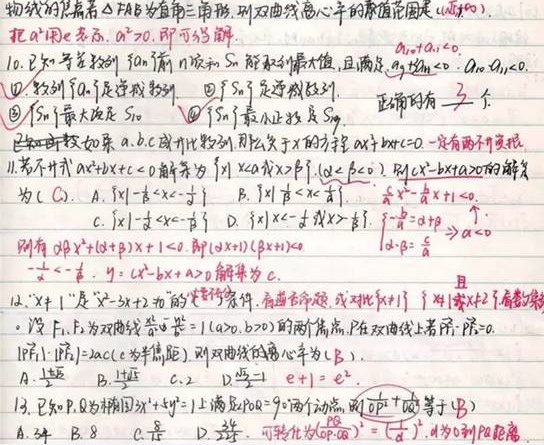 物线的焦点若△FAB为直角三角形,则双曲线离心率的取值范围是
把a²用e表示. a²>0. 即可得解
a₁₀+a₁₁<0.
10. 已知等差数列{an}前n项和Sn能取到最大值,且满足: a₉+a₁₁<0. a₁₀·a₁₁<0.
① 数列{an}是递减数列 ② {Sn}是递减数列. 正确的有 3 个.
③ {Sn}最大项是 S₁₀ ④ {Sn}最小正数是 S₁₉
如果a.b.c成等比数列,那么关于x的方程ax²+bx+c=0. 一定有两不等实根.
11. 若不等式ax²+bx+c<0解集为{x|x<α或x>β}.(α<β<0). 则cx²-bx+a>0的解集
为( C). A. {x|-1/β<x<-1/α} B. {x|1/β<x<1/α}. c/a x²-b/a x+1<0.
C. {x|-1/α<x<-1/β} D. {x|x<-1/α或x>-1/β}. -b/a=α+β ⇒ α<0
α·β=c/a
则有αβx²+(α+β)x+1<0. 即(αx+1)(βx+1)<0.
-1/α<-1/β. y=cx²-bx+a>0解集为C.
12. "x≠1"是"x²-3x+2≠0"的 条件. {x≠1} {x≠1且x≠2}
。设F₁、F₂为双曲线x²/a²-y²/b²=1(a>0.b>0)的两个焦点,P在双曲线上若PF₁·PF₂=0.
|PF₁|·|PF₂|=2ac(c为半焦距) 则双曲线的离心率为( B ).
A. B. (1+√5)/2 C. 2 D. e+1=e².
13. 已知P.Q为椭圆3x²+5y²=1上满足∠POQ=90°两个动点,则1/OP²+1/OQ²等于( B)
A. 34 B. 8 C. 8/15 D. 34/225. 可转化为(PQ/OP·OQ)²=(1/d)². d为O到PQ距离.